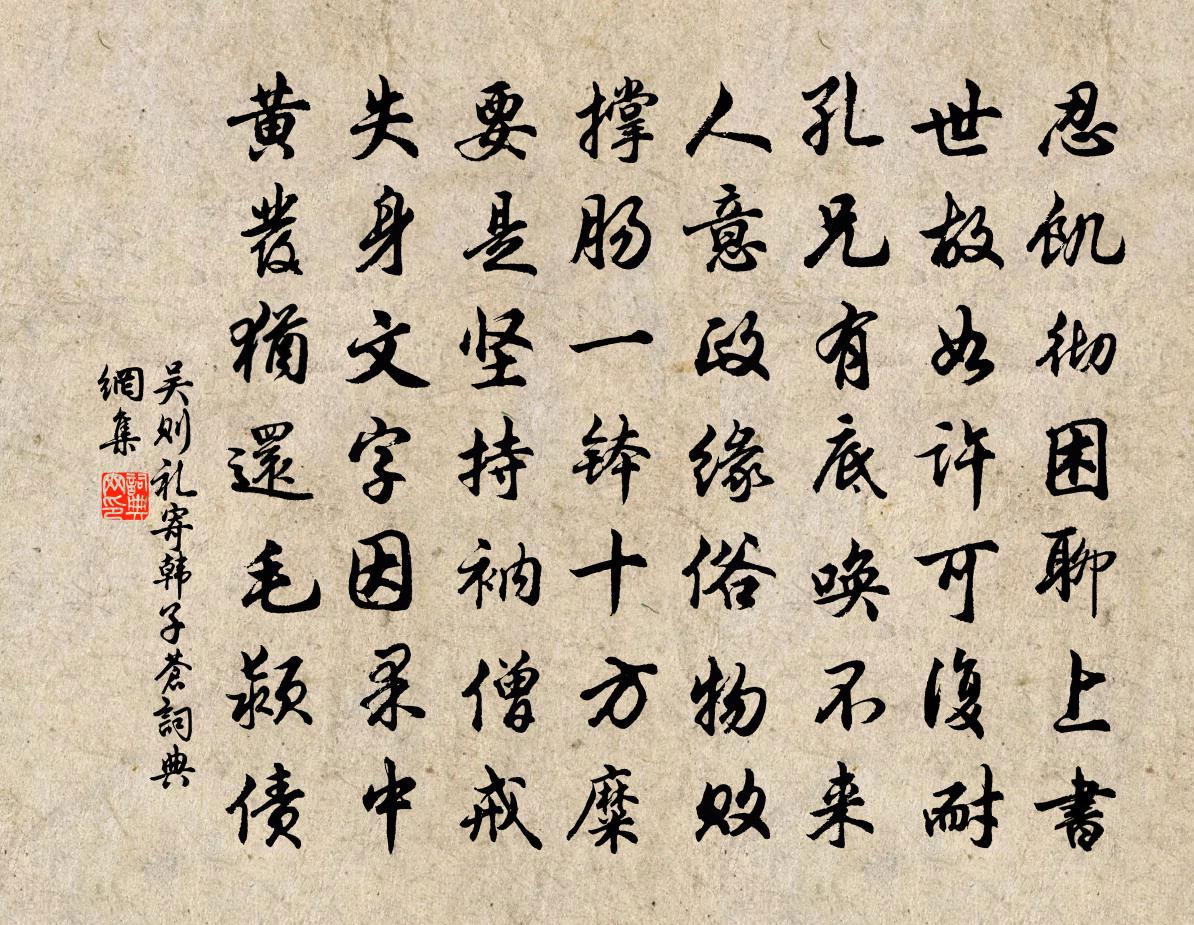 忍飢彻困聊上書
世故如许可復耐
孔兄有底唤不来
人意政缘俗物败
撑肠一钵十方糜
要是坚持衲僧戒
失身文字因果中
黄發猶還毛颖债
吴则礼寄韩子蒼詞典
網集
詞典
网印